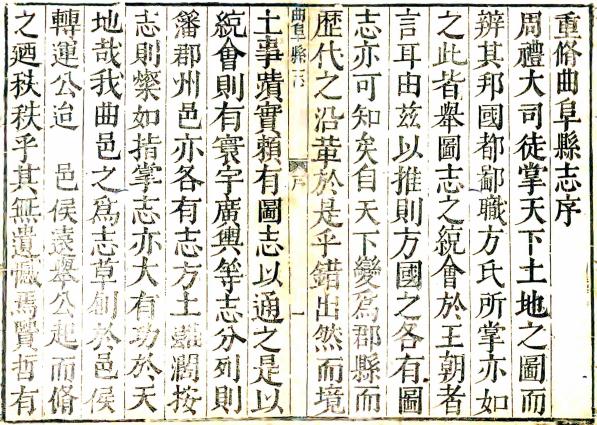 重脩曲阜縣志序
周禮大司徒掌天下土地之圖而
辨其邦國都鄙職方氏所掌亦如
之此皆舉圖志之統會於王朝者
言耳由兹以推則方國之各有圖
志亦可知矣自天下變爲郡縣而
歷代之沿革於是乎錯出然而境
曲阜縣志 序 一
土事蹟實賴有圖志以通之是以
統會則有寰宇廣輿等志分列則
籓郡州邑亦各有志方土濶按
志則燦如指掌志亦大有功於天
地哉我曲邑之爲志草創於邑侯
轉運公迨 邑侯遠舉公起而脩
之廼秩秩乎其無遺憾焉賢哲有